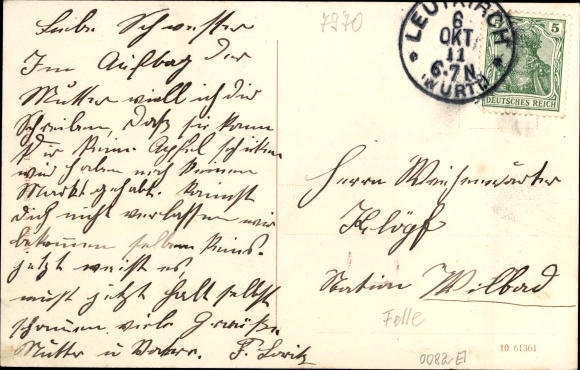 Liebe Schwester
Im Auftrag der
Mutter will ich dir
Schreiben, daß sie kann
dir keine Äpfel schiken
wir haben noch keinen
Markt gehabt. kannst
dich nicht verlassen wir
bekommen selber keins.
jetzt weist es,
must jetzt halt selbst
schauen viele Grüße
Mutter u Vater.
7970
LEUTKIRCH
6
OKT
11
6-7 N.
(WÜRTT)
5
DEUTSCHES REICH
Herrn Weichenwärter
Klöpf
Station Wilbad
0082-El
10 61361